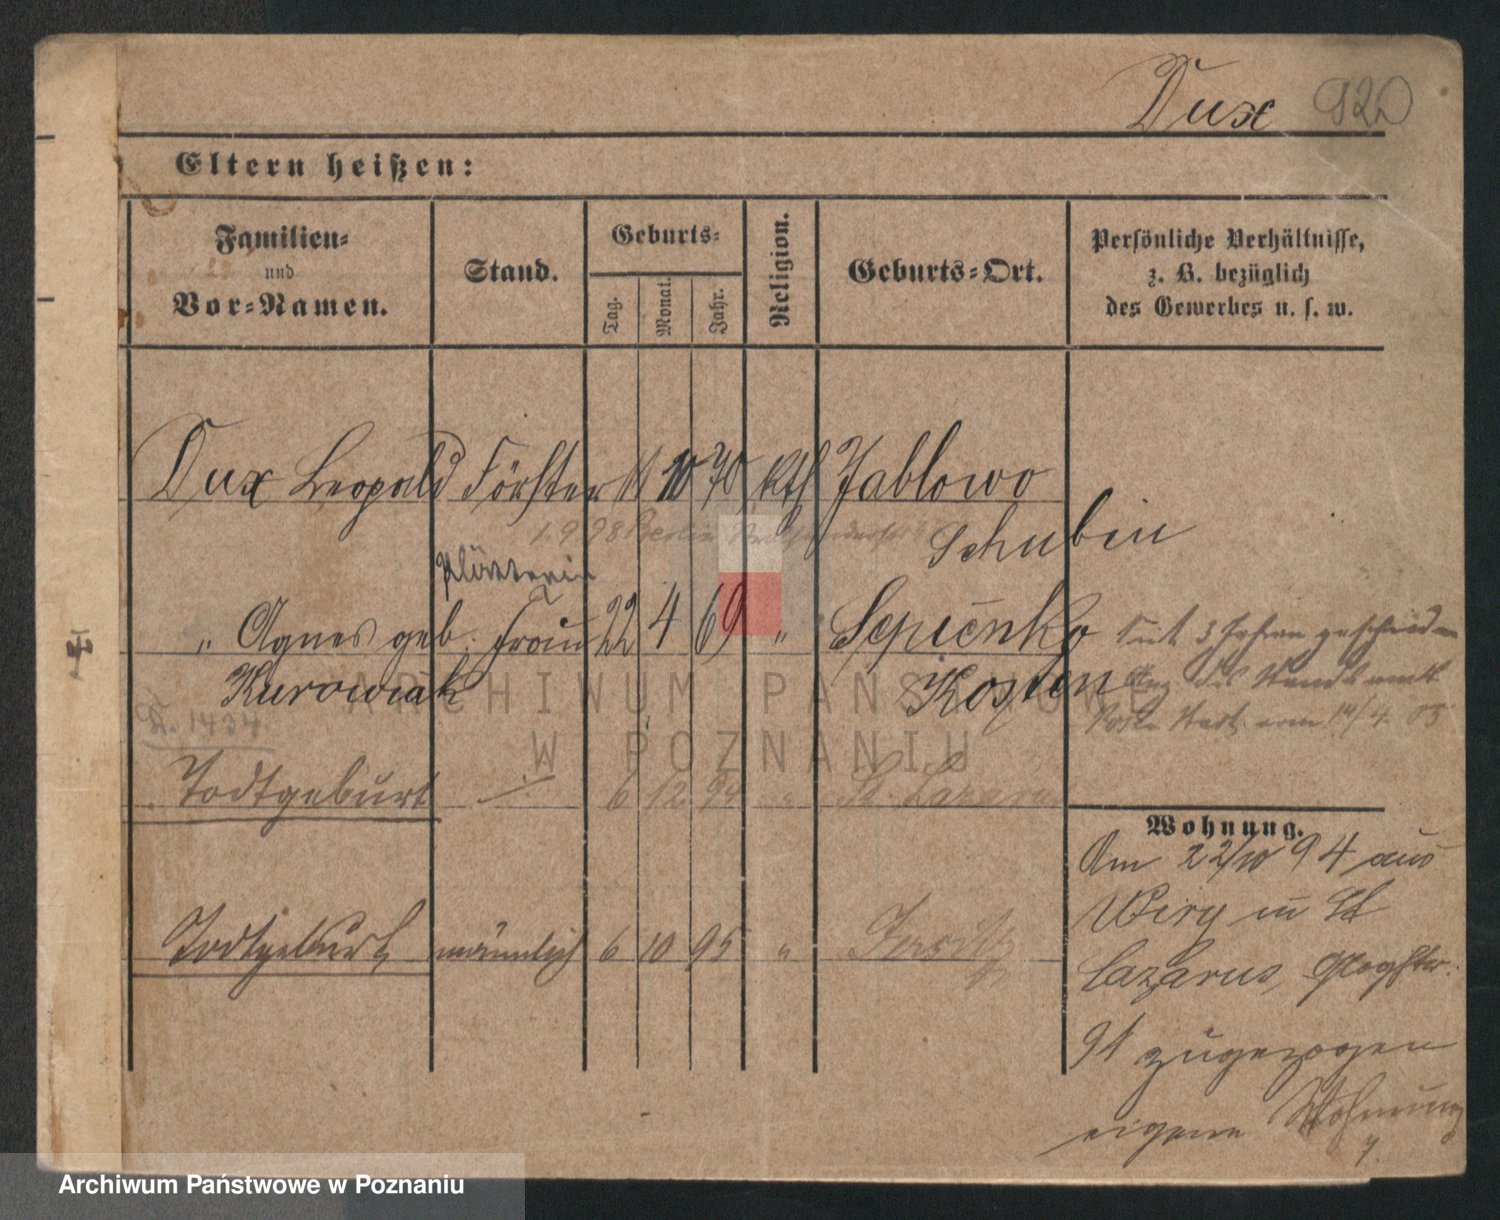 Dux 920
Eltern heißen:
Familien- und Vor-Namen.
Stand.
Geburts-
Tag. Monat. Jahr.
Religion.
Geburts-Ort.
Persönliche Verhältnisse, z. B. bezüglich des Gewerbes u. s. w.
Dux Leopold Förster 11 10 70 kth Jablowo
1.9.98 Berlin
Schubin
Plätterin
" Agnes geb. Frau 22 4 69 "
Kurowiak Kosten
seit 3 Jahren geschieden
des Standesamts
14/4. 03
K. 1434
Todtgeburt 6 12 94 " St. Lazarus
Wohnung.
Am 22/10 94 aus
Wiry in St
Lazarus,
91 zugezogen
eigene Wohnung
Todtgeburt männlich 6 10 95 " Jersitz
ARCHIWUM PAŃSTWOWE
W POZNANIU
Archiwum Państwowe w Poznaniu